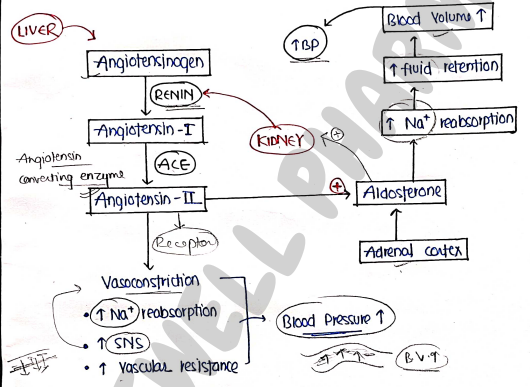 LIVER
Angiotensinogen
RENIN
Angiotensin-I
KIDNEY
Angiotensin
converting enzyme
ACE
Angiotensin-II
Receptor
Vasoconstriction
• ↑ Na⁺ reabsorption
• ↑ SNS
• ↑ Vascular resistance
Blood Pressure ↑
B.V.↑
Blood Volume ↑
↑BP
↑ fluid retention
↑ Na⁺ reabsorption
+
+
Aldosterone
Adrenal cortex
WELL PHARM